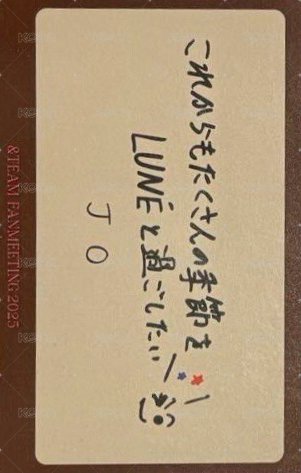 これからもたくさんの季節を
LUNÉと過ごしたい!!
JO
&TEAM FANMEETING 2025